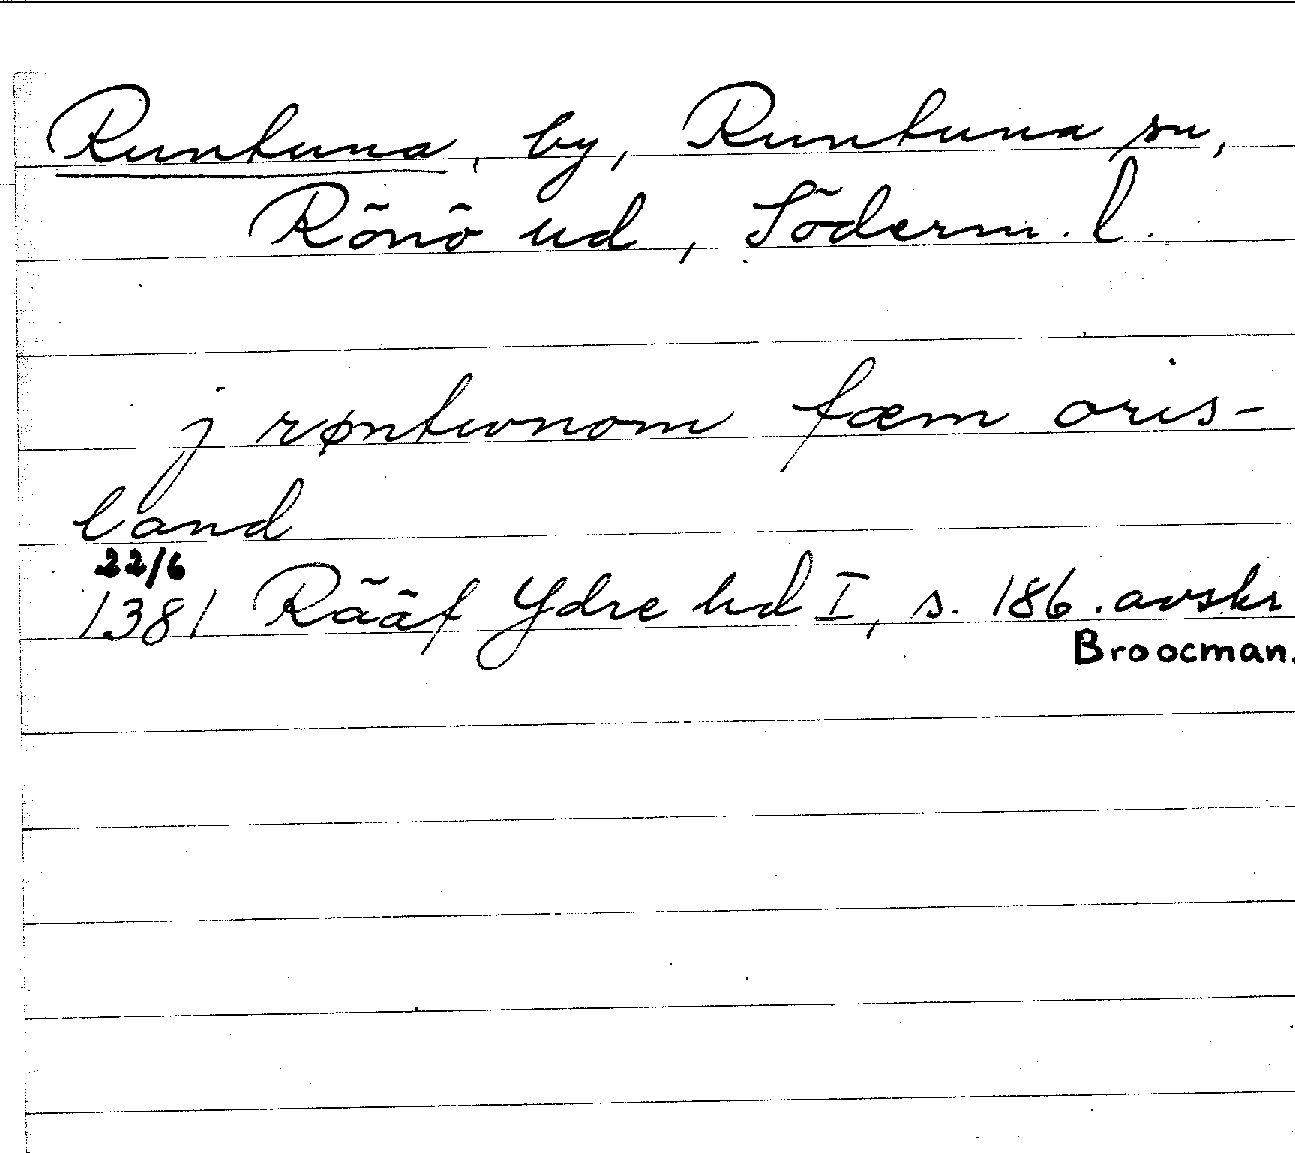 Runtuna, by, Runtuna sn,
Rönö hd, Söderm. l.
j røntvnom fæm øris-
land
22/6
1381 Rääf Ydre hd I, s. 186. avskr
Broocman.